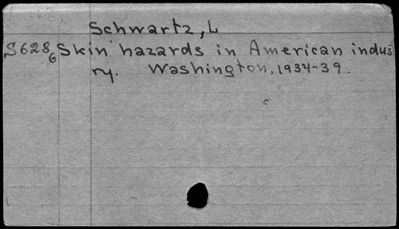 Schwartz, L
S628 Skin hazards in American indus
6
ry. Washington, 1934-39.